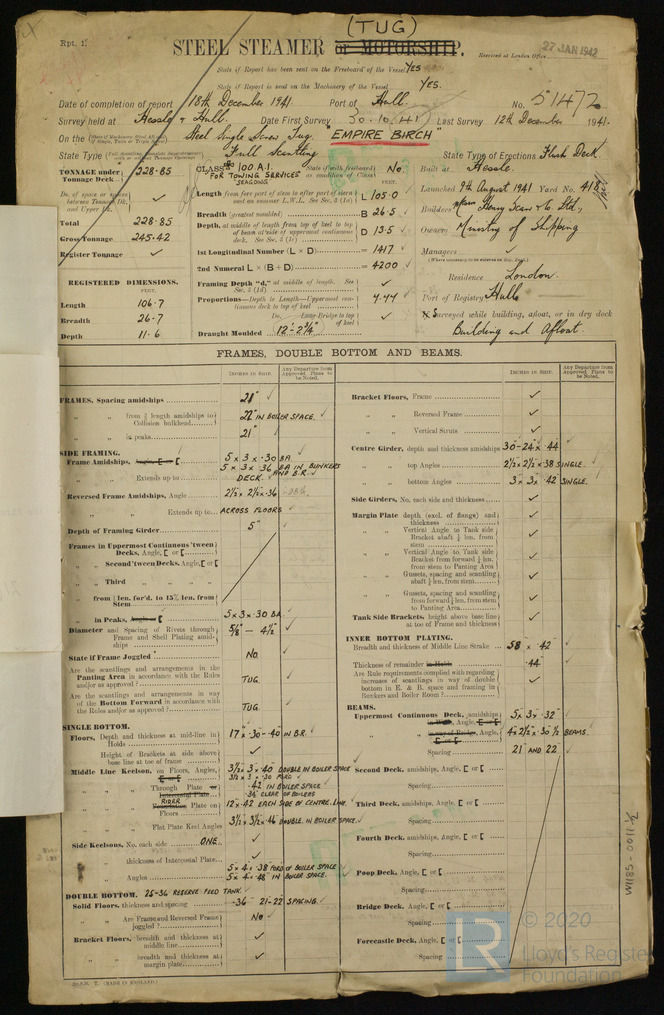 (TUG)
Rpt. 1.
STEEL STEAMER or MOTORSHIP.
Received at London Office
27 JAN 1942
State if Report has been sent on the Freeboard of the Vessel YES
State if Report is sent on the Machinery of the Vessel YES.
Date of completion of report 18th December 1941 Port of Hull. No. 51472
Survey held at Hessle & Hull. Date First Survey 30.10.41 Last Survey 12th December 1941.
On the Steel Single Screw Tug. "EMPIRE BIRCH"
State Type Full Scantling State Type of Erections Flush Deck
TONNAGE under Tonnage Deck 228.85
CLASS 100 A.1. State if with freeboard as condition of Class No.
"FOR TOWING SERVICES"
Built at Hessle.
Do. of space or spaces between Tonnage Dk. and Upper Dk. ✓
Launched 9th August 1941 Yard No. 418
Total 228.85
Gross Tonnage 245.42
Register Tonnage ✓
Length from fore part of stem to after part of stern post on summer L.W.L. See Sec. 3 (1a) L 105.0
Breadth (greatest moulded) B 26.5
Depth, at middle of length from top of keel to top of beam at side of uppermost continuous deck. See Sec. 3 (1c) D 13.5
1st Longitudinal Number (L × D) = 1417
2nd Numeral L × (B + D) = 4200
Framing Depth "d," at middle of length. See Sec. 3 (1d) ✓
Proportions—Depth to Length—Uppermost continuous deck to top of keel 7.77
Do. Long Bridge to top of keel ✓
Draught Moulded 12'-2¾"
Builders Messrs Henry Scarr & Co Ltd.,
Owners Ministry of Shipping
Managers ✓
Residence London.
Port of Registry Hull
Surveyed while building, afloat, or in dry dock
Building and Afloat.
REGISTERED DIMENSIONS.
FEET.
Length 106.7
Breadth 26.7
Depth 11.6
FRAMES, DOUBLE BOTTOM AND BEAMS.
INCHES IN SHIP.
Any Departure from Approved Plans to be Noted.
INCHES IN SHIP.
Any Departure from Approved Plans to be Noted.
FRAMES, Spacing amidships 21"
" " from ⅗ length amidships to Collision bulkhead 22" IN BOILER SPACE.
" " in peaks 21"
SIDE FRAMING.
Frame Amidships, Angle, [ or [ 5 x 3 x .30 BA
5 x 3 x .36 BA IN BUNKERS AND B.R.
" " Extends up to DECK.
Reversed Frame Amidships, Angle 2½ x 2½ x .36
" " Extends up to ACROSS FLOORS
Depth of Framing Girder 5"
Frames in Uppermost Continuous 'tween Decks, Angle, [ or [
" " Second 'tween Decks, Angle, [ or [
" " Third " " " "
" " from ⅗ len. for'd. to 15% len. from Stem
" " in Peaks, Angle or [ 5 x 3 x .30 BA
Diameter and Spacing of Rivets through Frame and Shell Plating amidships ⅝" — 4½"
State if Frame Joggled No.
Are the scantlings and arrangements in the Panting Area in accordance with the Rules and/or as approved? TUG.
Are the scantlings and arrangements in way of the Bottom Forward in accordance with the Rules and/or as approved? TUG
SINGLE BOTTOM.
Floors, Depth and thickness at mid-line in Holds 17" x .30 - .40 IN B.R.
Height of Brackets at side above base line at toe of frame ✓
Middle Line Keelson, on Floors, Angles, [ or [ 3½ x 3 x .40 DOUBLE IN BOILER SPACE
3½ x 3 x .30 FORD
" " Through Plate or Intercostal Plate .42 IN BOILER SPACE
.36 CLEAR OF BOILERS
" " RIDER Foundation Plate on Floors 12 x .42 EACH SIDE OF CENTRE LINE.
" " Flat Plate Keel Angles 3½ x 3½ x .46 DOUBLE IN BOILER SPACE.
Side Keelsons, No. each side ONE
" " thickness of Intercostal Plate
" " Angles 5 x 4 x .38 FORD OF BOILER SPACE
5 x 4 x .48 IN BOILER SPACE.
DOUBLE BOTTOM. 25-36 RESERVE FEED TANK.
Solid Floors, thickness and spacing .36" 21-22 SPACING.
" " Are Frame and Reversed Frame joggled? No
Bracket Floors, breadth and thickness at middle line ✓
" " breadth and thickness at margin plate ✓
Bracket Floors, Frame ✓
" " Reversed Frame ✓
" " Vertical Struts ✓
Centre Girder, depth and thickness amidships 30-24 x .44
" " top Angles 2½ x 2½ x .38 SINGLE.
" " bottom Angles 3 x 3 x .42 SINGLE.
Side Girders, No. each side and thickness ✓
Margin Plate depth (excl. of flange) and thickness ✓
" " Vertical Angle to Tank side Bracket abaft ¼ len. from stem ✓
" " Vertical Angle to Tank side Bracket from forward ¼ len. from stem to Panting Area ✓
" " Gussets, spacing and scantling abaft ¼ len. from stem ✓
" " Gussets, spacing and scantling from forward ¼ len. from stem to Panting Area ✓
Tank Side Brackets, height above base line at toe of Frame and thickness ✓
INNER BOTTOM PLATING.
Breadth and thickness of Middle Line Strake 58 x .42
Thickness of remainder in Holds .44
Are Rule requirements complied with regarding increases of scantlings in way of double bottom in E. & B. space and framing in Bunkers and Boiler Room? ✓
BEAMS.
Uppermost Continuous Deck, amidships 5 x 3 x .32
4 x 2½ x .30 ½ BEAMS.
Spacing 21 AND 22
Second Deck, amidships, Angle, [ or [
Spacing
Third Deck, amidships, Angle, [ or [
Spacing
Fourth Deck, amidships, Angle, [ or [
Spacing
Poop Deck, Angle, [ or [
Spacing
Bridge Deck, Angle, [ or [
Spacing
Forecastle Deck, Angle, [ or [
Spacing
W1185-0011½
(MADE IN ENGLAND.)
LR
© 2020
Lloyd's Register
Foundation